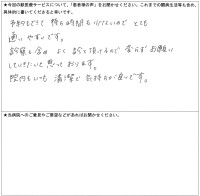 ★今回の獣医療サービスについて、「飼主様の声」をお聞かせください。これまでの闘病生活等も含め、
具体的に書いてくださると幸いです。
予約もできて 待ち時間もいらないので とても
通いやすいです。
診察も含め よく診て頂けるので 変らずお願い
していきたいと思っております。
院内もいつも清潔で 気持ちが良いです。
★当病院へのご意見やご要望などがあればお聞かせください。